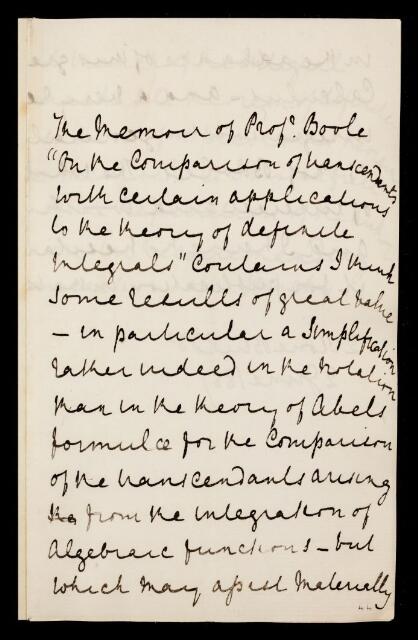 The Memoir of Profr. Boole
"On the Comparison of transcendants
with certain applications
to the theory of definite
Integrals" contains I think
some results of great value
– in particular a Simplification
rather indeed in the notation
than in the theory of Abels
formulæ for the Comparison
of the transcendants arising
from the integration of
Algebraic functions – but
which may assist Materially